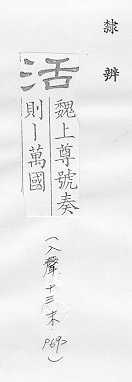 隸辨
活
魏上尊號奏
則丨萬國
(入聲十三末 )